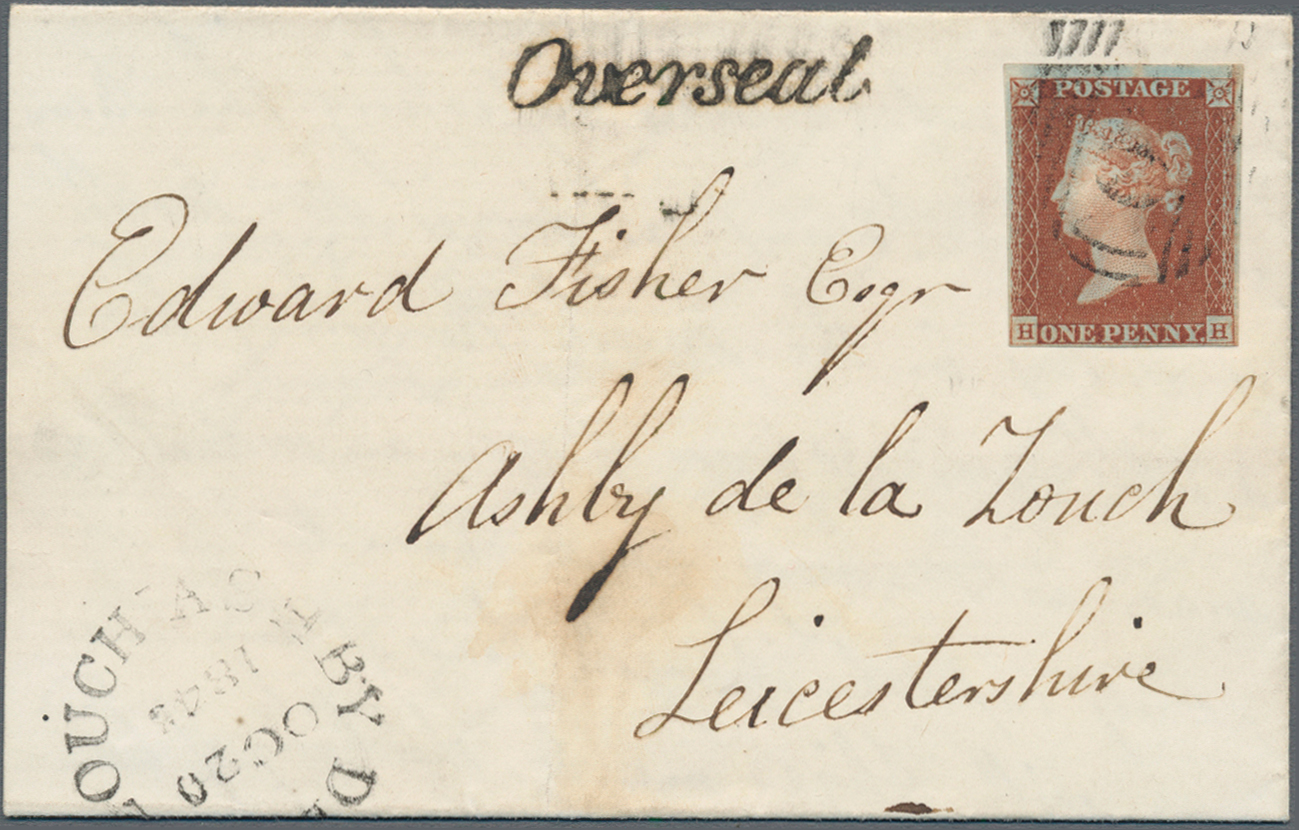 Overseal
POSTAGE
H ONE PENNY. H
Edward Fisher Esqr
Ashby de la Zouch
Leicestershire
OUCH ASHBY D
1848
OC20